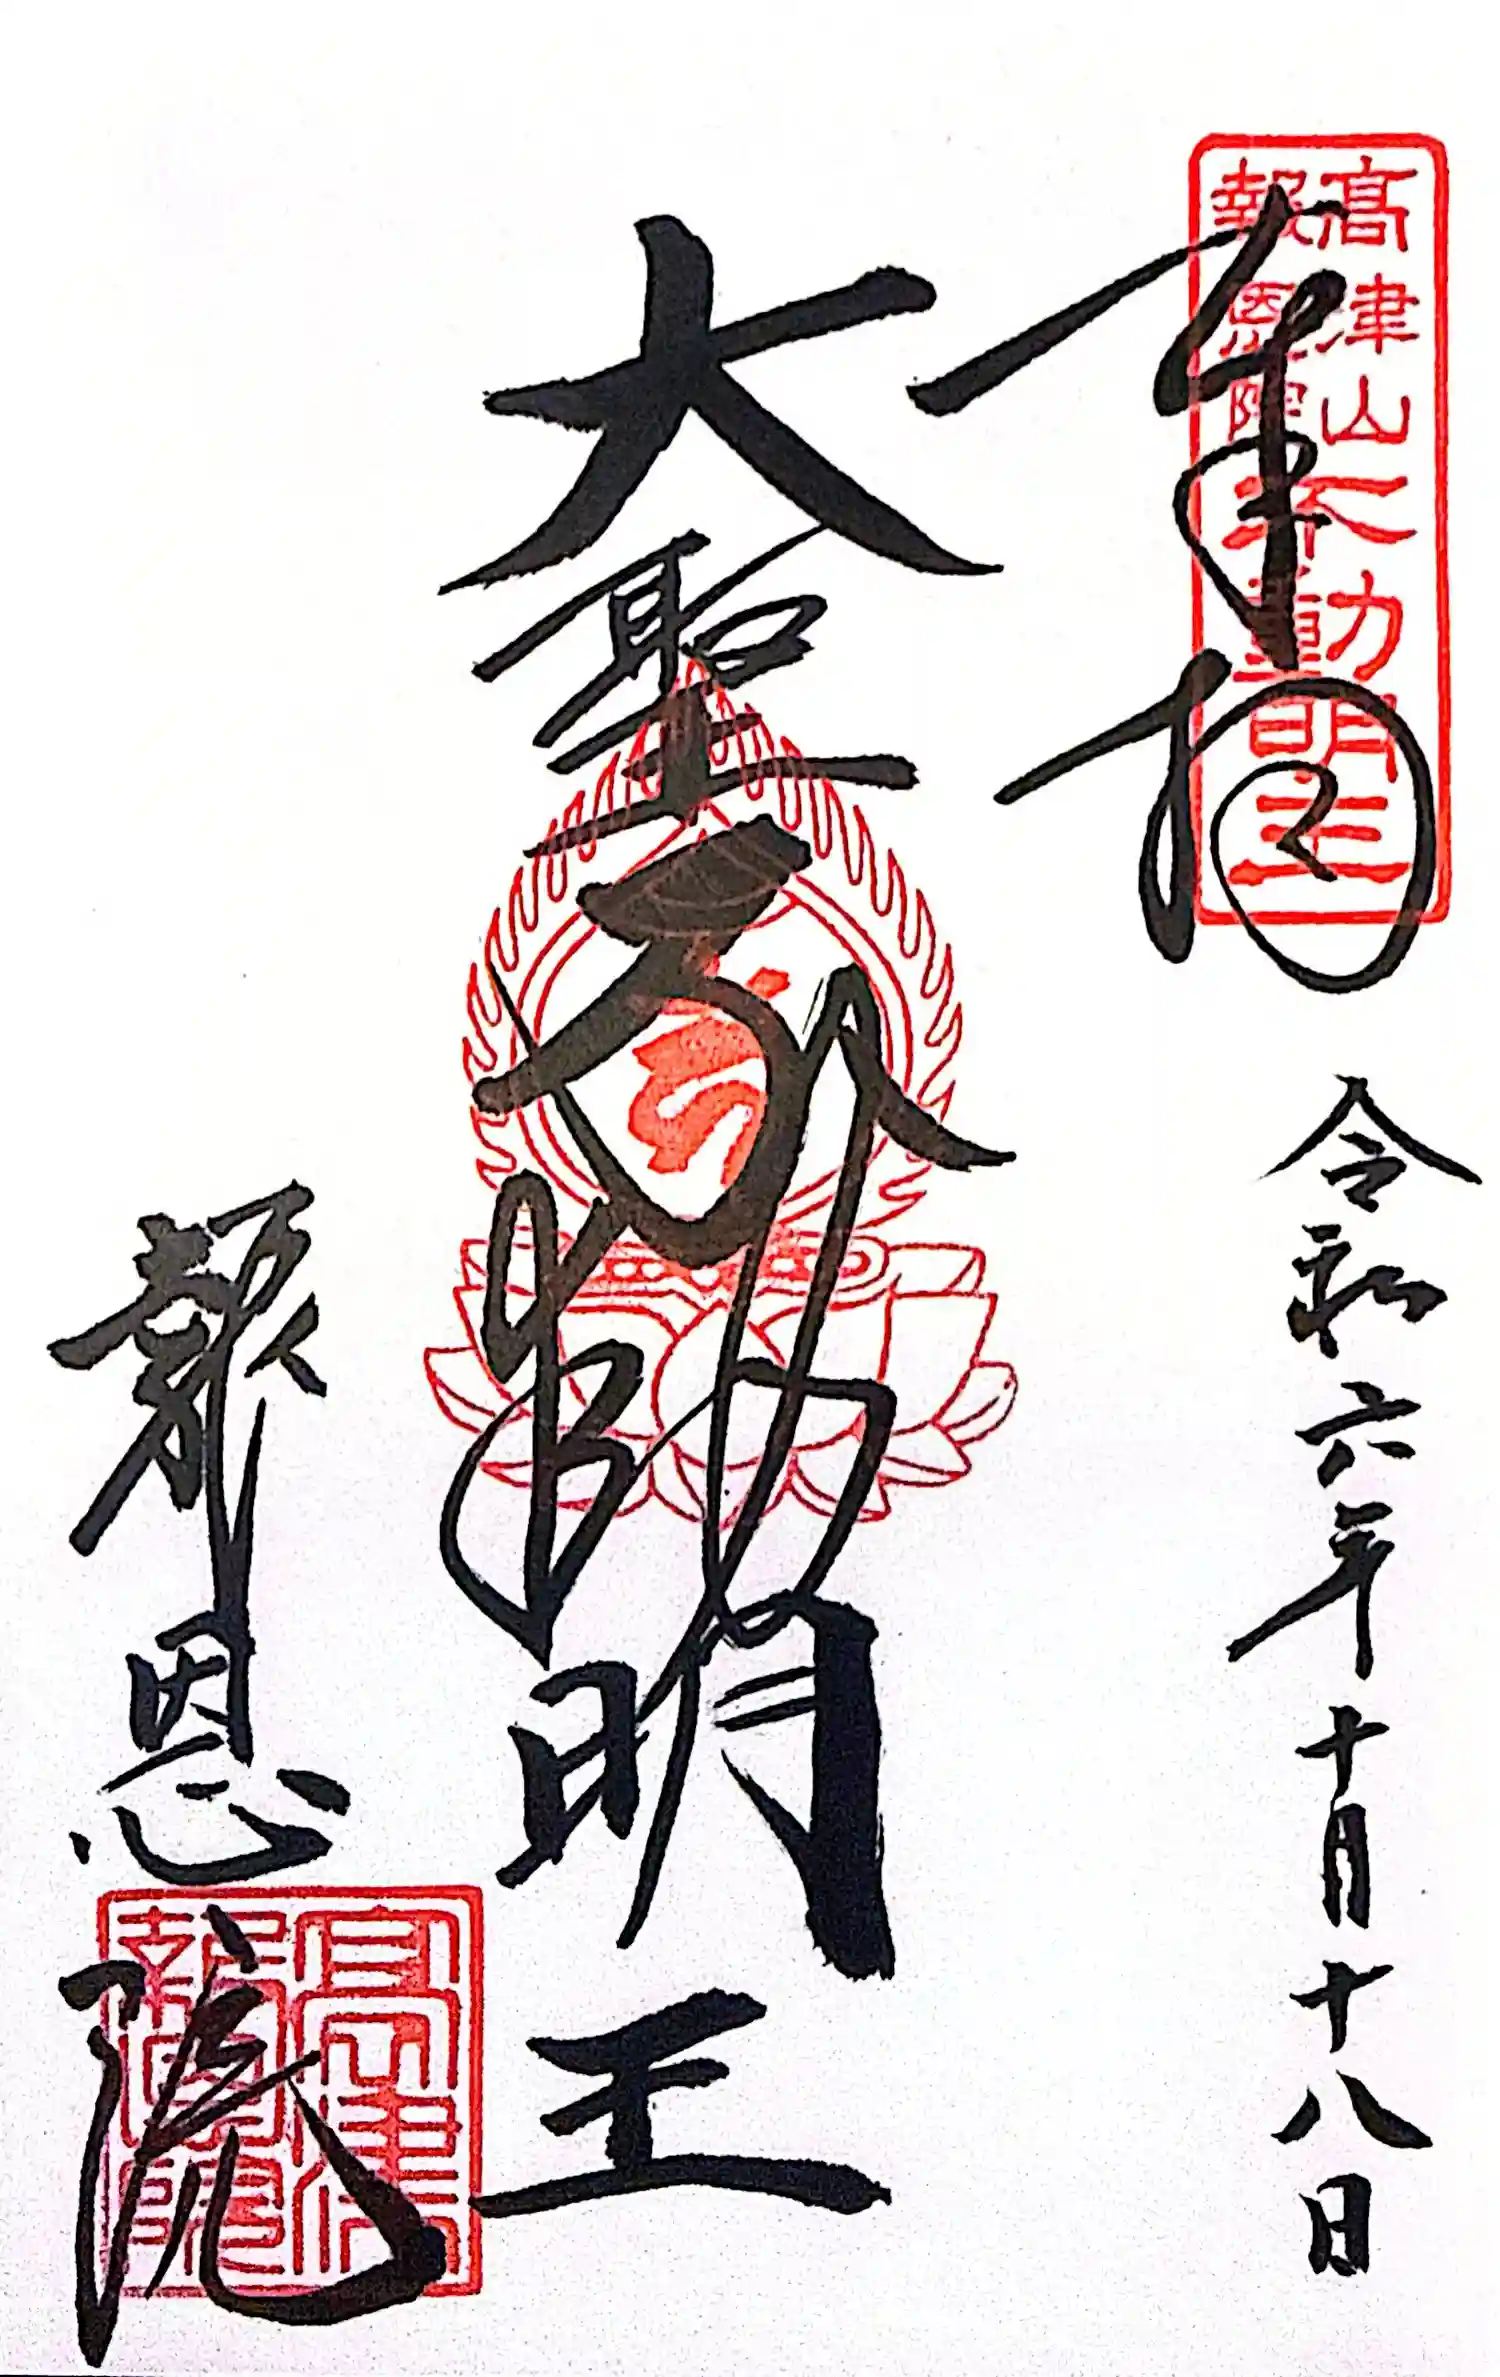 奉拝
高津山
報恩院
不動明王
令和六年十月十八日
大聖不動明王
報恩院
高津
報恩院